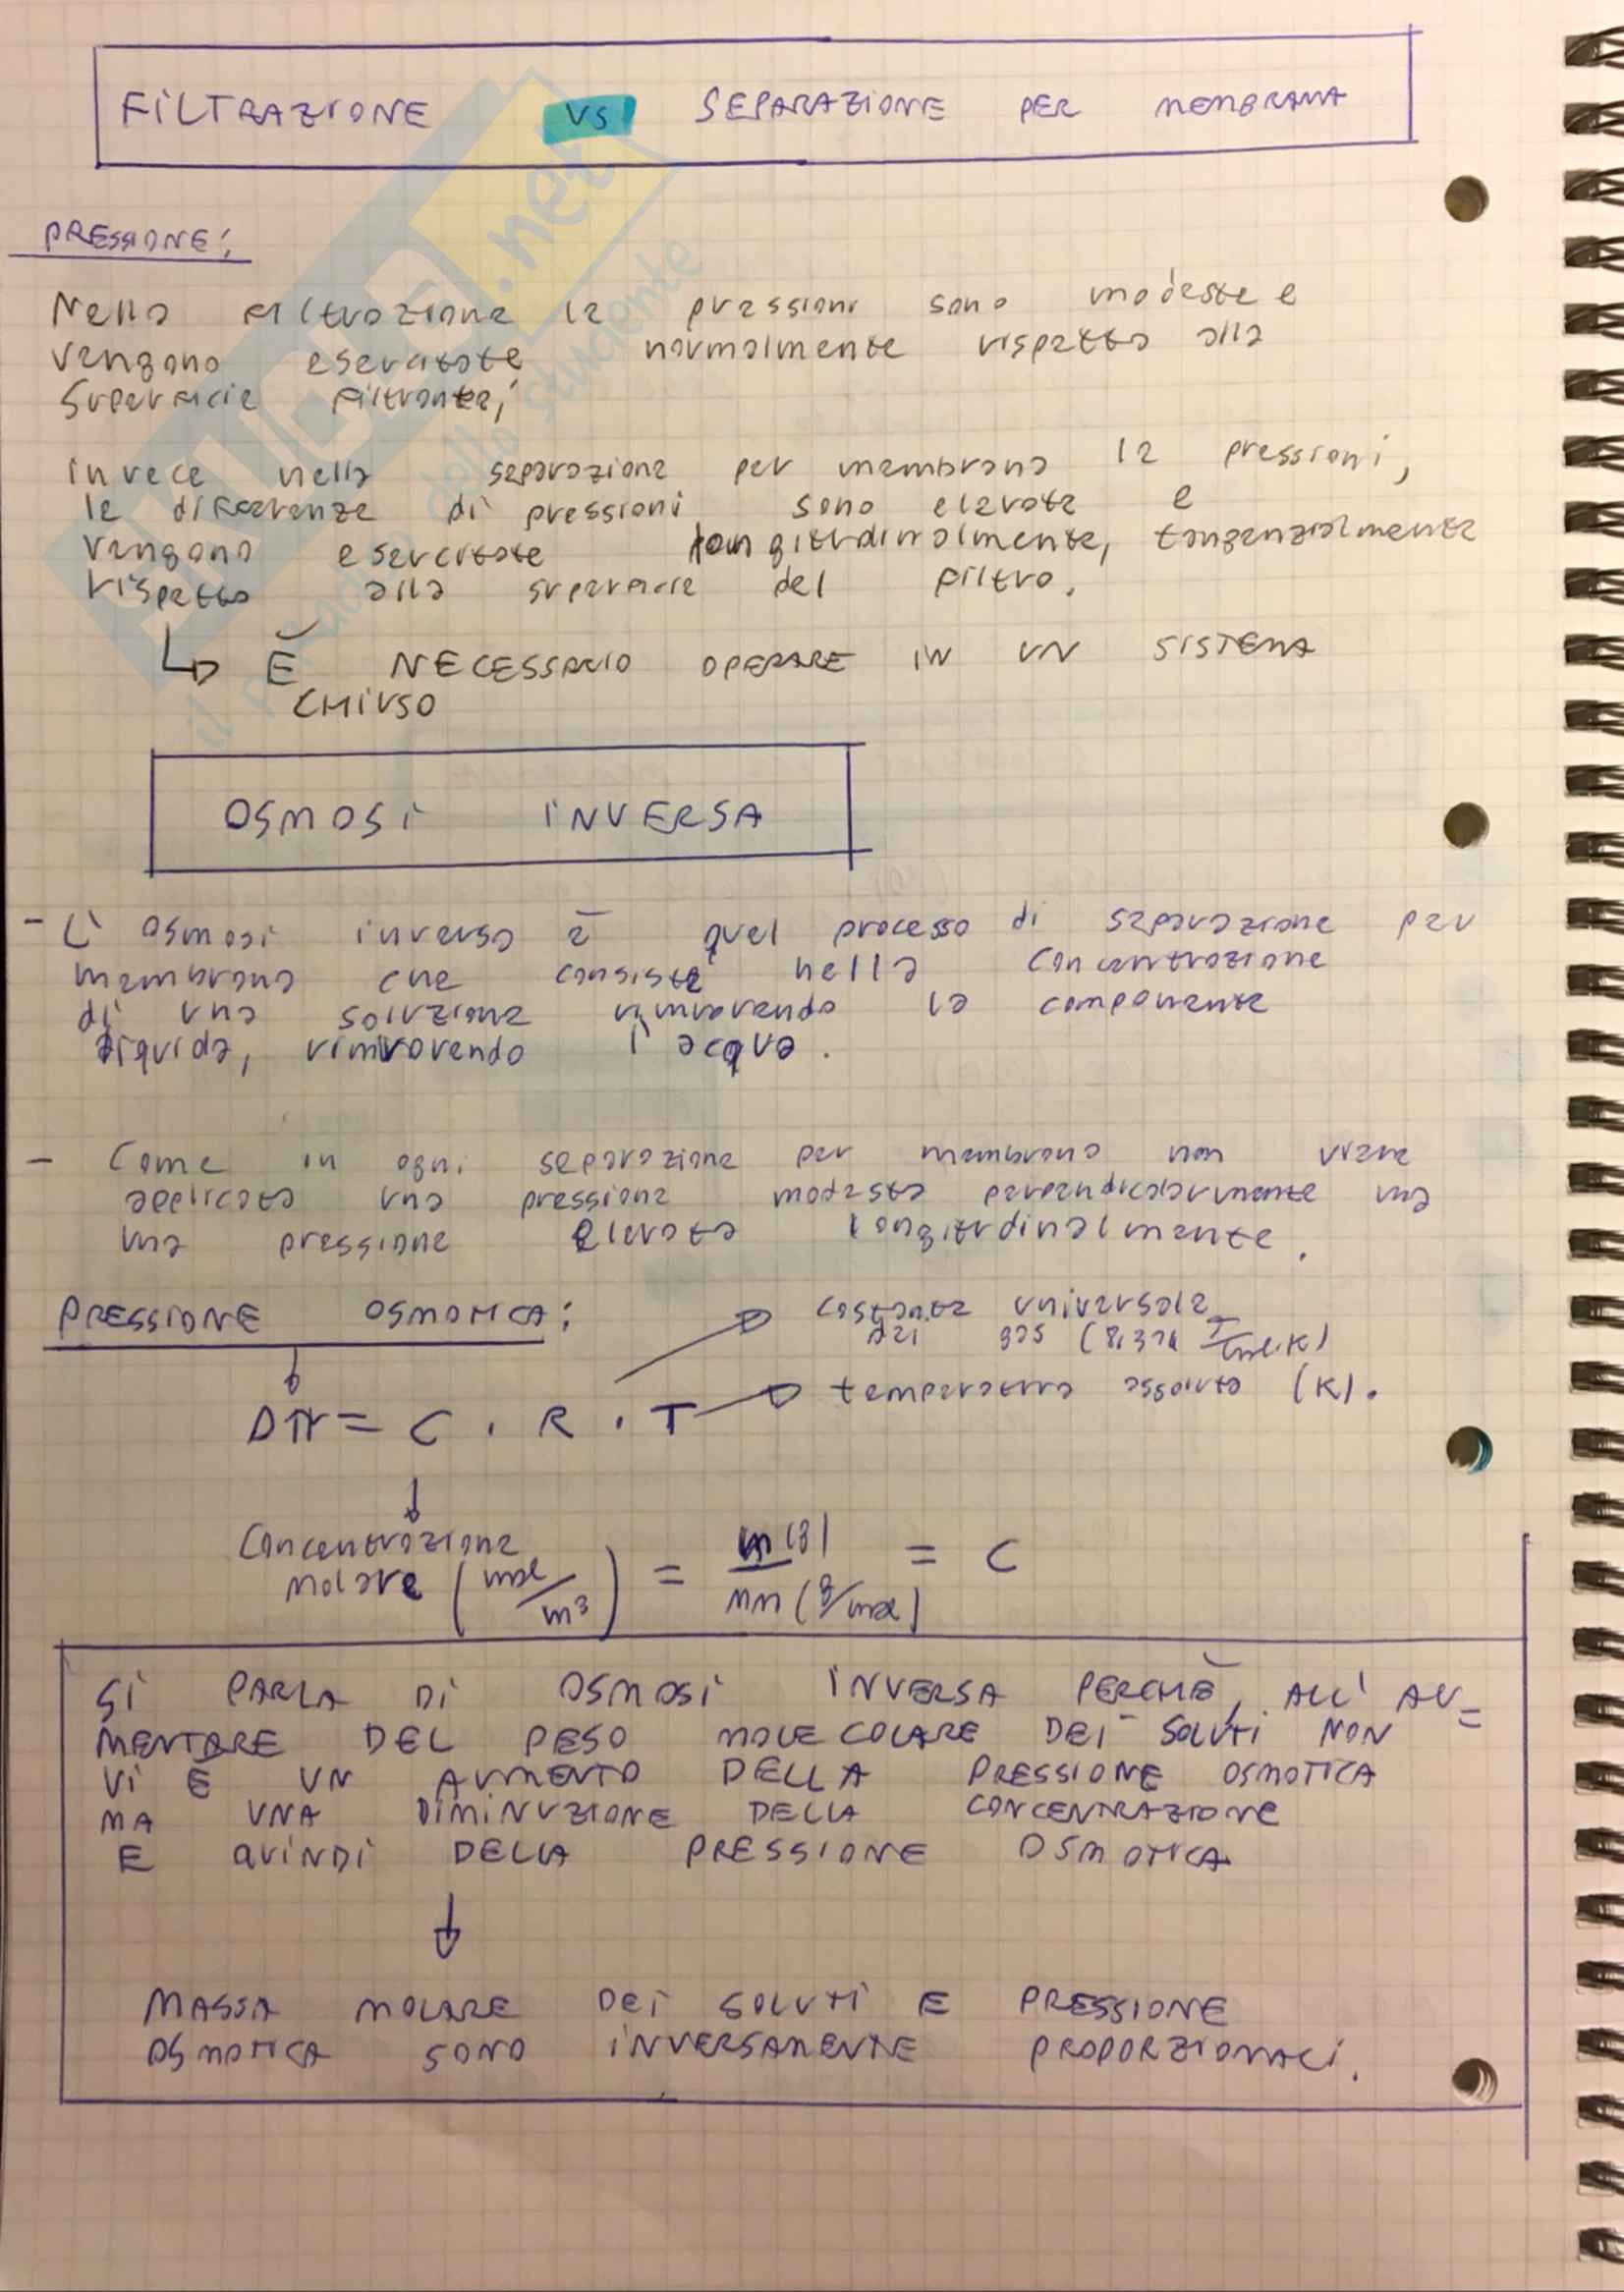 FILTRAZIONE VS SEPARAZIONE PER MEMBRANA
PRESSIONE:
Nella filtrazione le pressioni sono modeste e
vengono esercitate normalmente rispetto alla
superficie filtrante;
invece nella separazione per membrana le pressioni,
le differenze di pressioni sono elevate e
vengono esercitate longitudinalmente, tangenzialmente
rispetto alla superficie del filtro.
È NECESSARIO OPERARE IN UN SISTEMA
CHIUSO
OSMOSI INVERSA
- L' osmosi inversa è quel processo di separazione per
membrana che consiste nella concentrazione
di una soluzione rimuovendo la componente
liquida, rimuovendo l'acqua.
- Come in ogni separazione per membrana non viene
applicata una pressione modesta perpendicolarmente ma
una pressione elevata longitudinalmente.
PRESSIONE OSMOTICA:
costante universale
dei gas (8,314 J/mol·K)
temperatura assoluta (K).
Dπ = C · R · T
Concentrazione
molare (mol/m³) = m(g)/MM(g/mol) = C
SI PARLA DI OSMOSI INVERSA PERCHÈ, ALL' AU=
MENTARE DEL PESO MOLECOLARE DEI SOLUTI NON
VI È UN AUMENTO DELLA PRESSIONE OSMOTICA
MA UNA DIMINUZIONE DELLA CONCENTRAZIONE
E QUINDI DELLA PRESSIONE OSMOTICA
MASSA MOLARE DEI SOLUTI E PRESSIONE
OSMOTICA SONO INVERSAMENTE PROPORZIONALI.
.net
dello studente